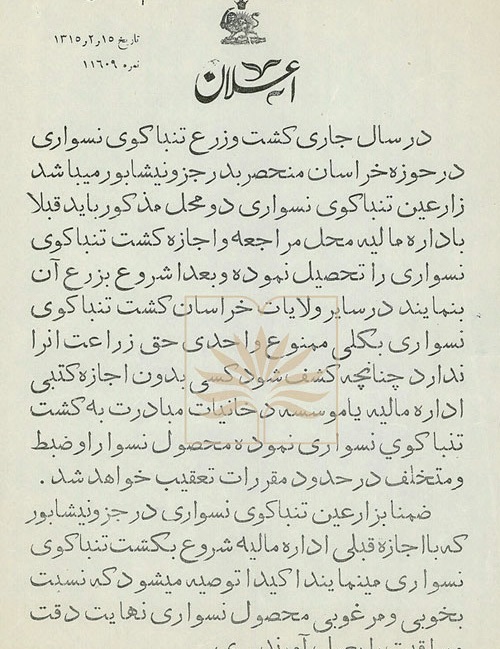 تاریخ ۱۵ر۲ر۱۳۱۵
نمره ۱۱۶۰۹
اعلان
در سال جاری کشت و زرع تنباکوی نسواری
در حوزه خراسان منحصر بدرجز و نیشابور میباشد
زارعین تنباکوی نسواری دو محل مذکور باید قبلا
باداره مالیه محل مراجعه و اجازه کشت تنباکوی
نسواری را تحصیل نموده و بعدا شروع بزرع آن
بنمایند در سایر ولایات خراسان کشت تنباکوی
نسواری بکلی ممنوع و احدی حق زراعت انرا
ندارد چنانچه کشف شود کسی بدون اجازه کتبی
اداره مالیه یا موسسه دخانیات مبادرت به کشت
تنباکوي نسواری نموده محصول نسوار او ضبط
و متخلف در حدود مقررات تعقیب خواهد شد .
ضمنا بزارعین تنباکوی نسواری درجز و نیشابور
که با اجازه قبلی اداره مالیه شروع بکشت تنباکوی
نسواری مینمایند اکیدا توصیه میشود که نسبت
بخوبی و مرغوبی محصول نسواری نهایت دقت